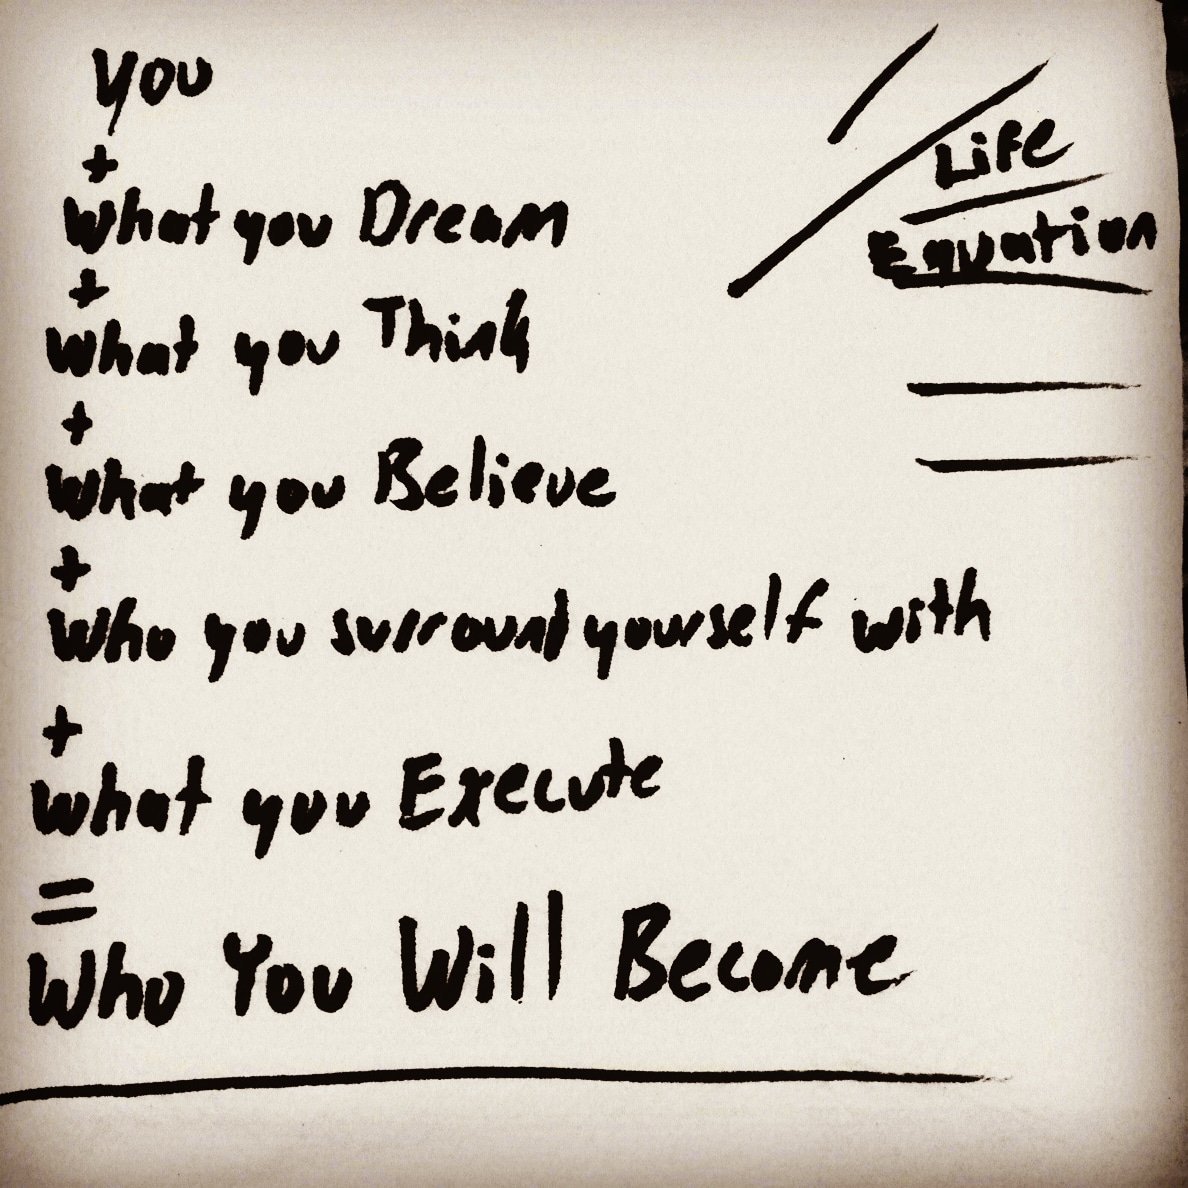 Life
Equation
You
+
What you Dream
+
What you Think
+
What you Believe
+
Who you surround yourself with
+
What you Execute
=
Who You Will Become